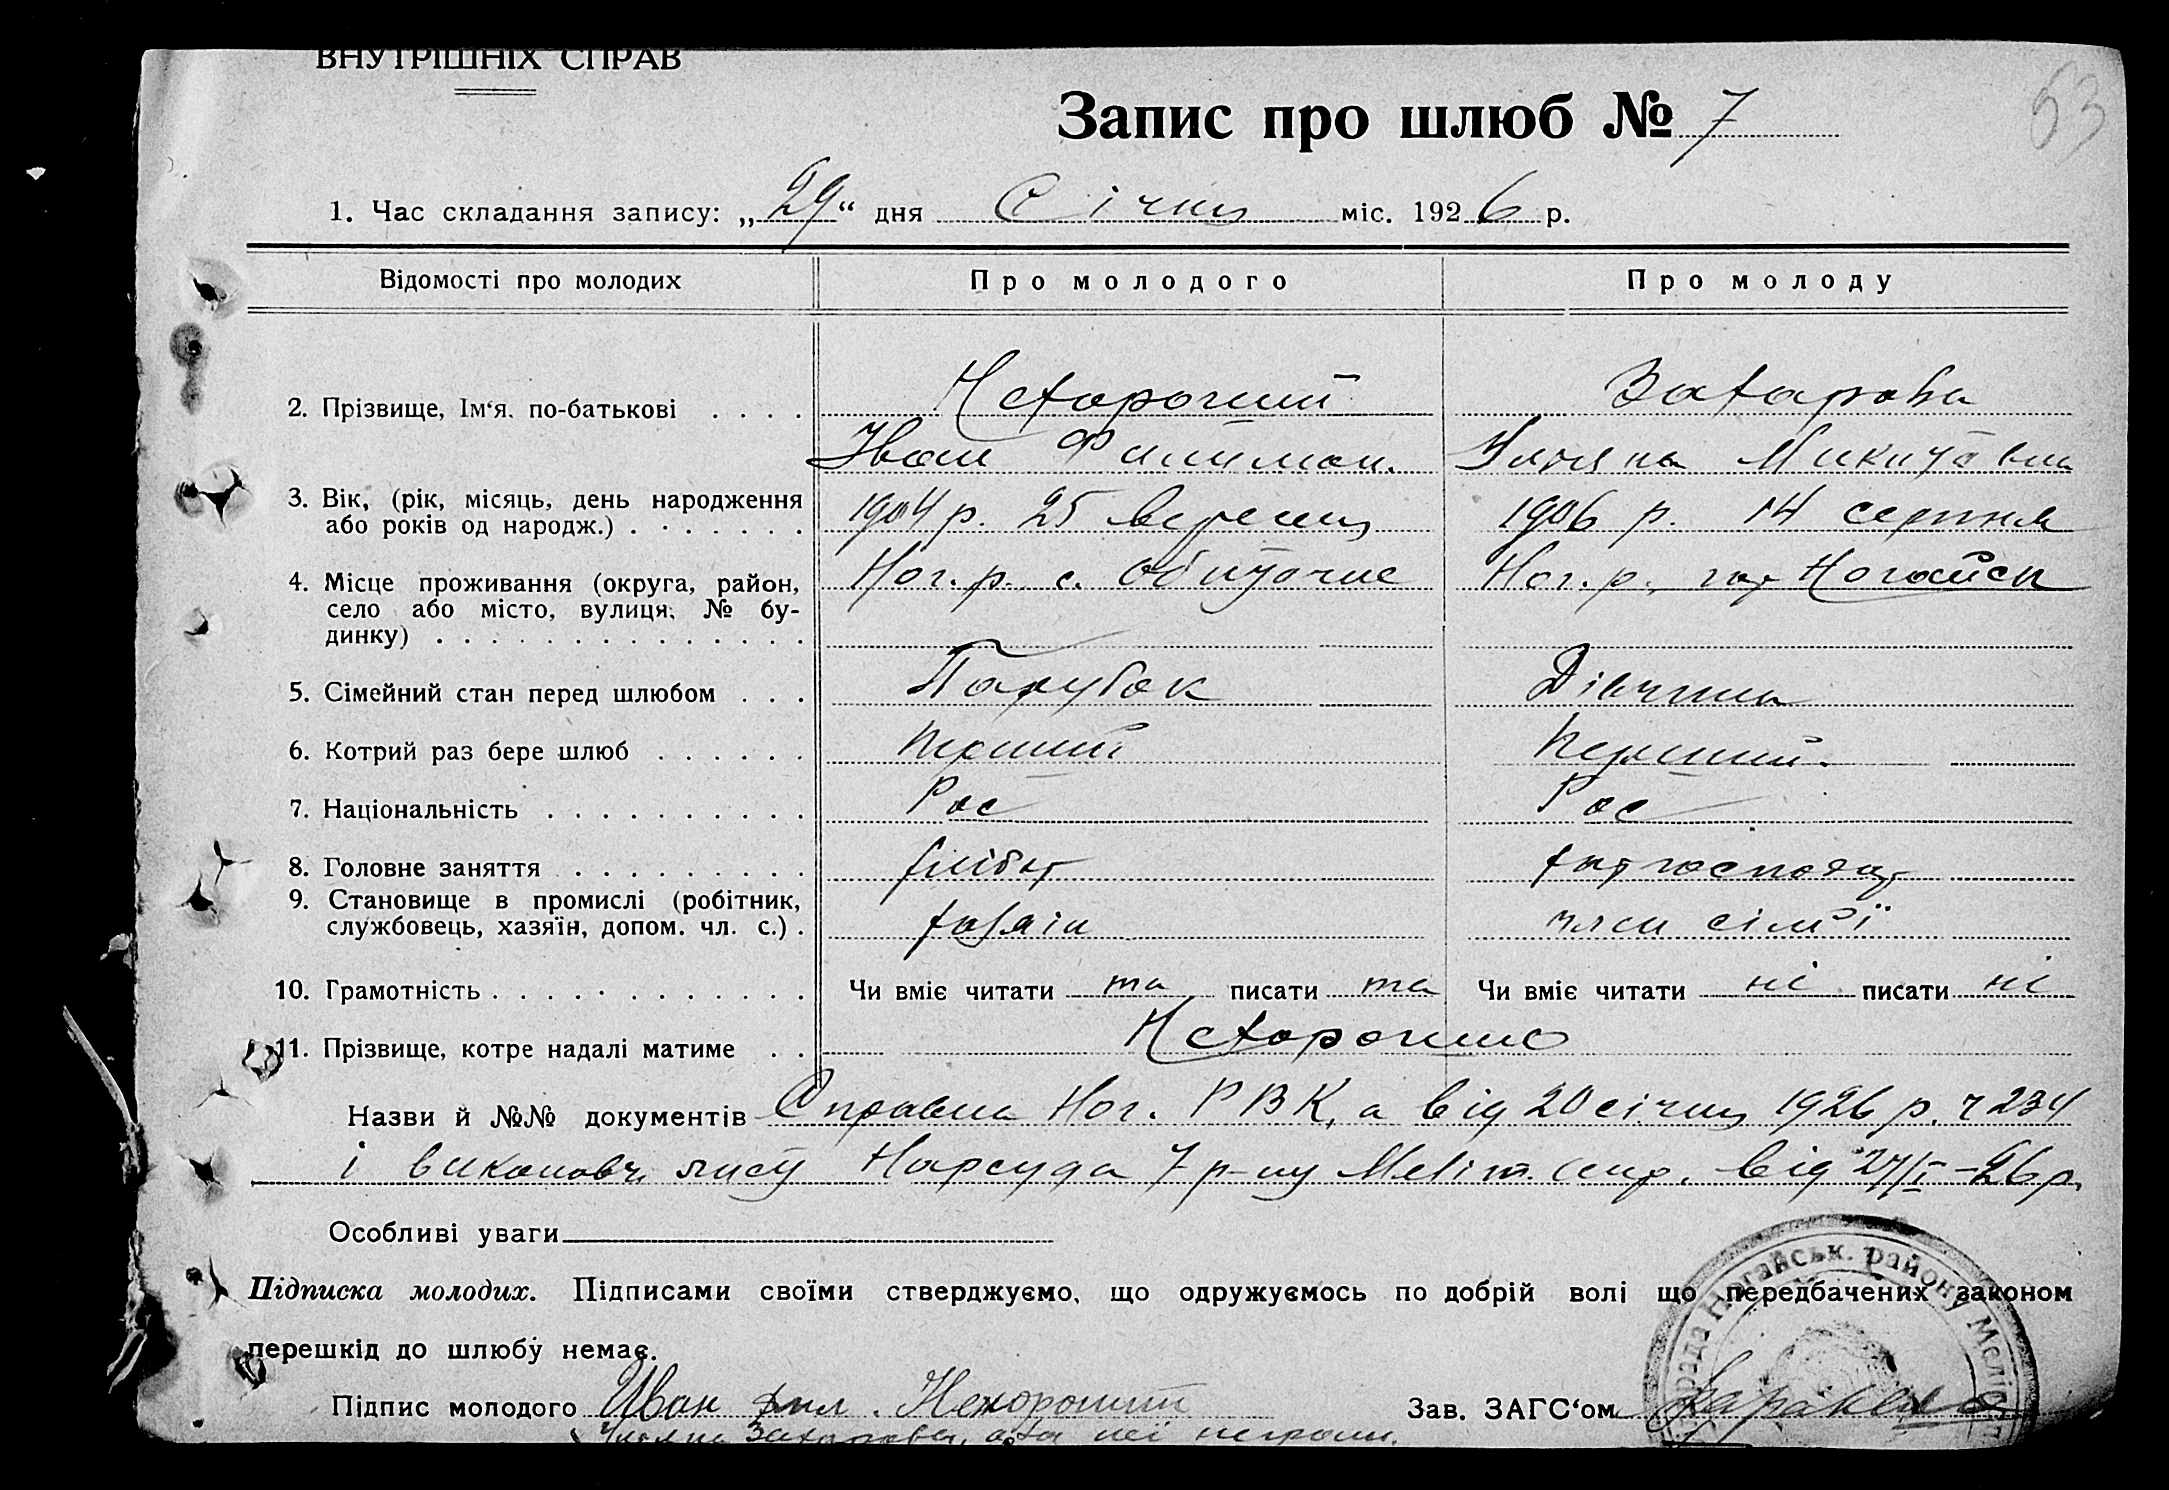 ВНУТРІШНІХ СПРАВ
53
Запис про шлюб № 7
1. Час складання запису: „29“ дня Січня міс. 1926 р.
Відомості про молодих Про молодого Про молоду
2. Прізвище, Ім‘я. по-батькові . . . . Нехороший Захарова
Іван Филимон. Уляна Микитовна
3. Вік, (рік, місяць, день народження
або років од народж.) . . . . . . . 1904 р. 25 вересня 1906 р. 14 серпня
4. Місце проживання (округа, район, Ног. р. с. Обиточне Ног. р., Ногайськ
село або місто, вулиця, № бу-
динку) . . . . . . . . . . . . . .
5. Сімейний стан перед шлюбом . . . Парубок Дівчина
6. Котрий раз бере шлюб . . . . . . Перший Перший.
7. Національність . . . . . . . . . . Рос Рос
8. Головне заняття . . . . . . . . . хлібор хатгосподар
9. Становище в промислі (робітник,
службовець, хазяїн, допом. чл. с.) . хазяїн член сім'ї
10. Грамотність . . . . . . . . . . . . Чи вміє читати та писати та Чи вміє читати ні писати ні
11. Прізвище, котре надалі матиме . . Нехороших
Назви й №№ документів Справка Ног. РВК, а від 20 січня 1926 р. ч 234
і виконавч. листу Нарсуда 7 р-ну Меліт. окр. від 27/I–26 р.
Особливі уваги
Підписка молодих. Підписами своїми стверджуємо, що одружуємось по добрій волі що передбачених законом
перешкід до шлюбу немає.
Підпис молодого Иван Фил. Нехороший Зав. ЗАГС‘ом
Уляна Захарова, а за неї неграм.
Ногайськ. району Меліт